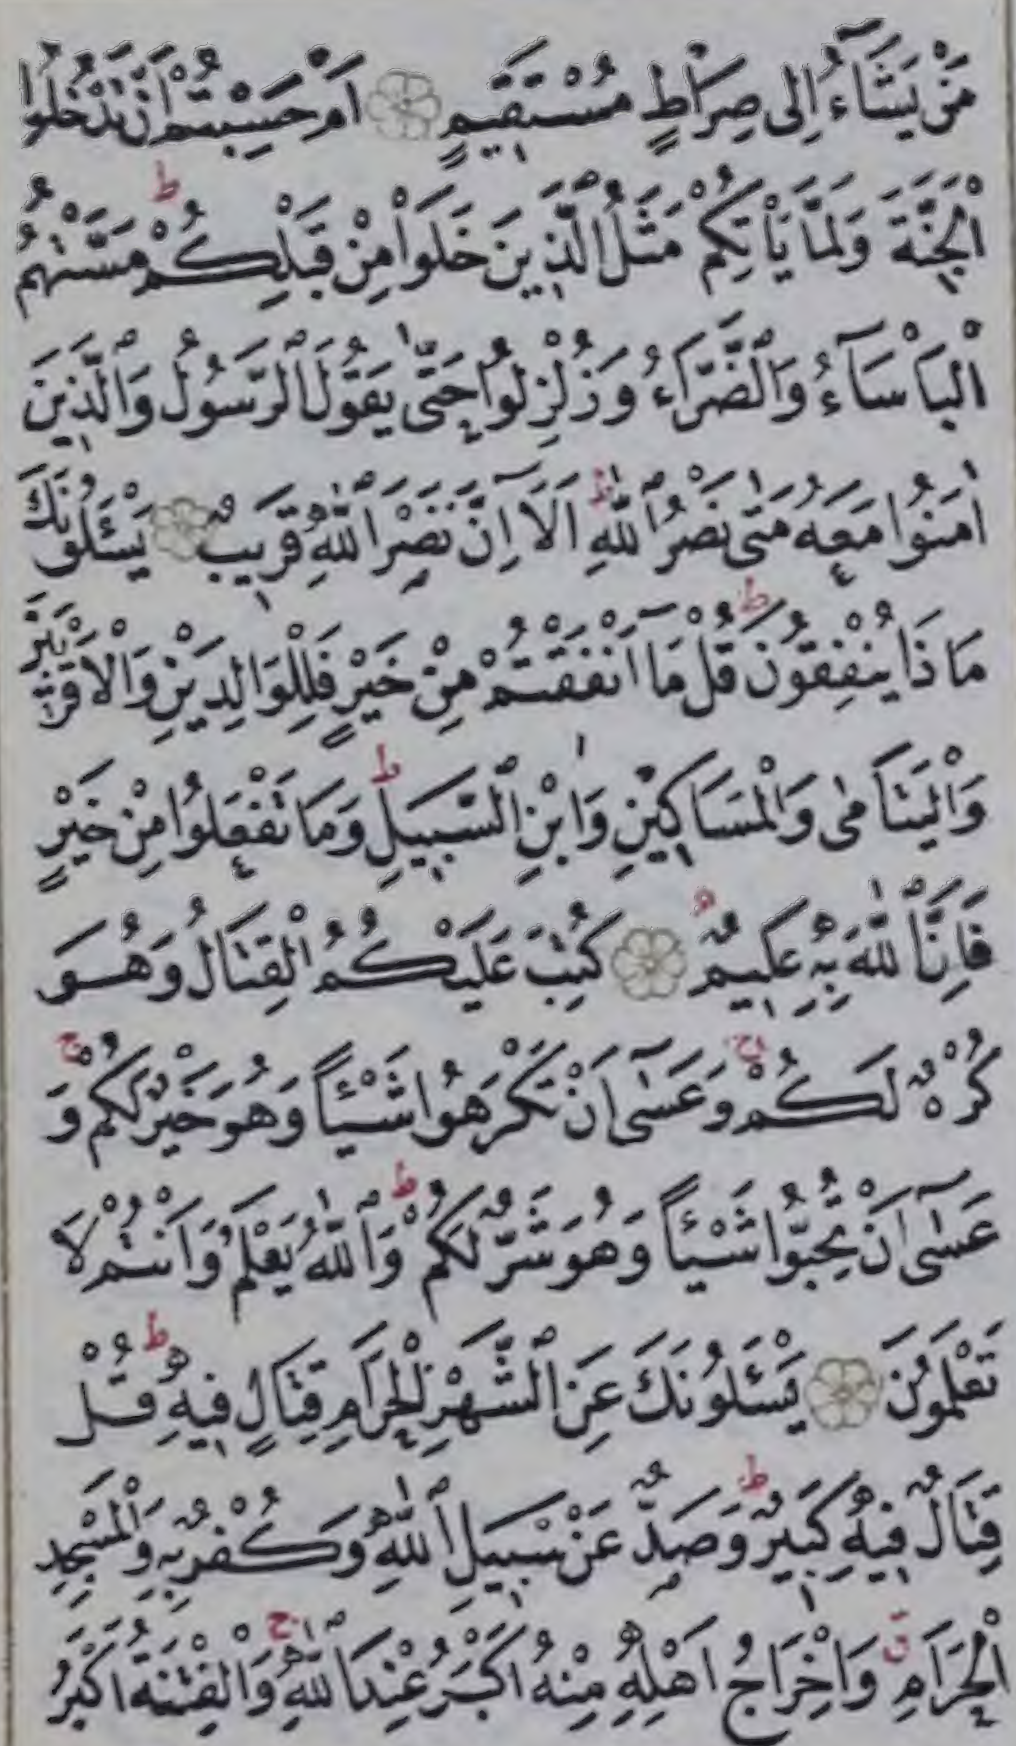 مَنْ يَشَٓاءُ اِلٰى صِرَاطٍ مُسْتَقٖيمٍ اَمْ حَسِبْتُمْ اَنْ تَدْخُلُوا
الْجَنَّةَ وَلَمَّا يَاْتِكُمْ مَثَلُ الَّذٖينَ خَلَوْا مِنْ قَبْلِكُمْ ط مَسَّتْهُمُ
الْبَاْسَٓاءُ وَالضَّرَّٓاءُ وَزُلْزِلُوا حَتّٰى يَقُولَ الرَّسُولُ وَالَّذٖينَ
اٰمَنُوا مَعَهُ مَتٰى نَصْرُ اللّٰهِ ط اَلَٓا اِنَّ نَصْرَ اللّٰهِ قَرٖيبٌ يَسْـَٔلُونَكَ
مَاذَا يُنْفِقُونَ ط قُلْ مَٓا اَنْفَقْتُمْ مِنْ خَيْرٍ فَلِلْوَالِدَيْنِ وَالْاَقْرَبٖينَ
وَالْيَتَامٰى وَالْمَسَاكٖينِ وَابْنِ السَّبٖيلِ ط وَمَا تَفْعَلُوا مِنْ خَيْرٍ
فَاِنَّ اللّٰهَ بِهٖ عَلٖيمٌ كُتِبَ عَلَيْكُمُ الْقِتَالُ وَهُوَ
كُرْهٌ لَكُمْ ج وَعَسٰٓى اَنْ تَكْرَهُوا شَيْـًٔا وَهُوَ خَيْرٌ لَكُمْ ج وَ
عَسٰٓى اَنْ تُحِبُّوا شَيْـًٔا وَهُوَ شَرٌّ لَكُمْ ط وَاللّٰهُ يَعْلَمُ وَاَنْتُمْ لَا
تَعْلَمُونَ يَسْـَٔلُونَكَ عَنِ الشَّهْرِ الْحَرَامِ قِتَالٍ فٖيهِ ط قُلْ
قِتَالٌ فٖيهِ كَبٖيرٌ ط وَصَدٌّ عَنْ سَبٖيلِ اللّٰهِ وَكُفْرٌ بِهٖ وَالْمَسْجِدِ
الْحَرَامِ ق وَاِخْرَاجُ اَهْلِهٖ مِنْهُ اَكْبَرُ عِنْدَ اللّٰهِ ج وَالْفِتْنَةُ اَكْبَرُ